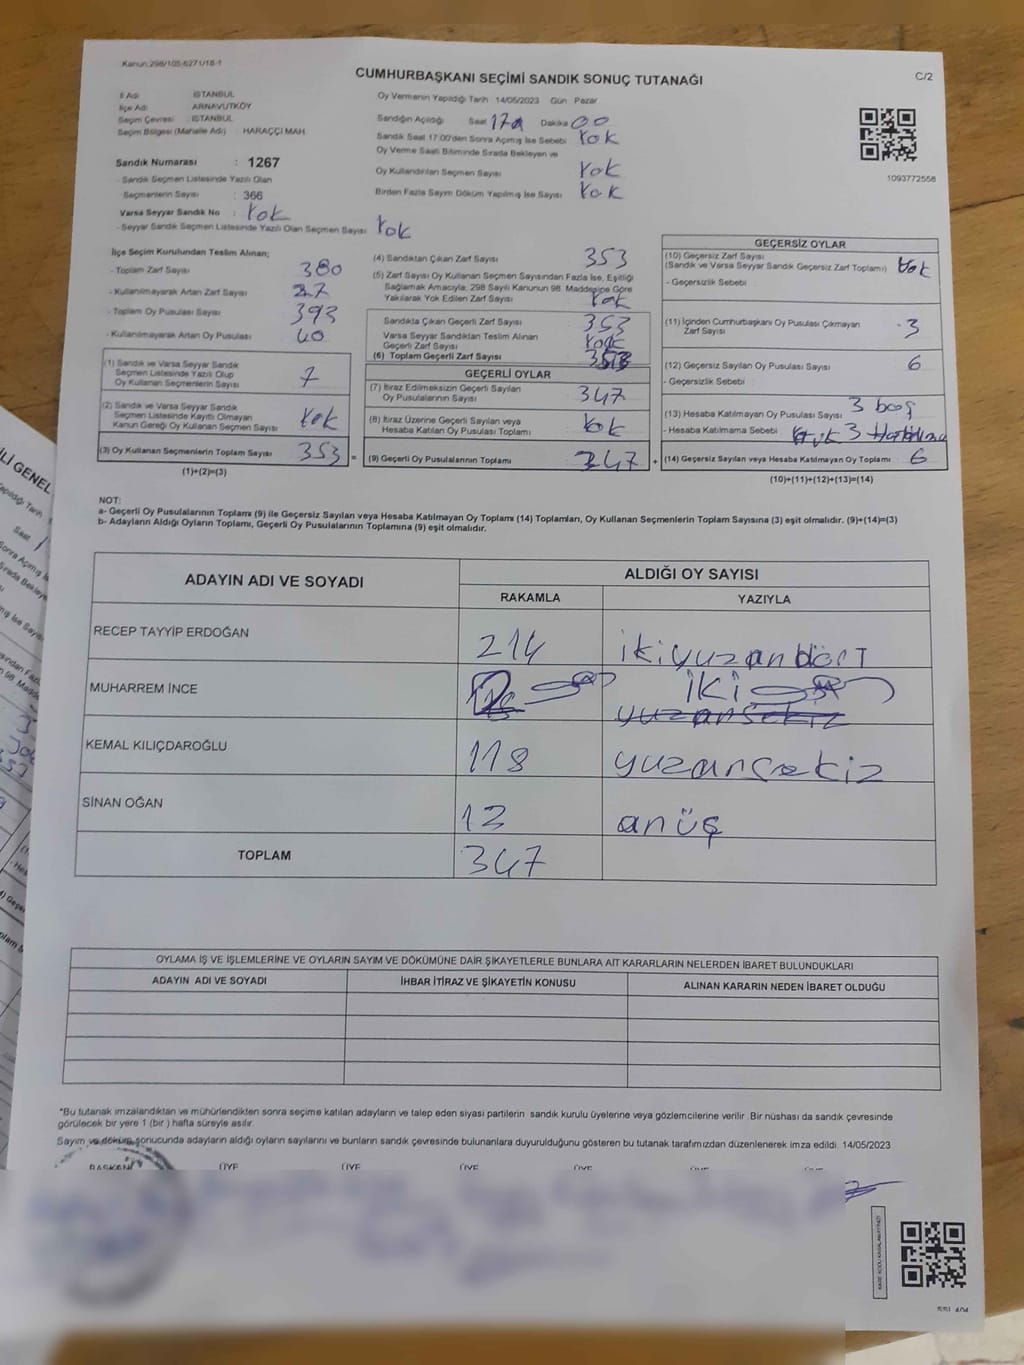 Kanun:298/105;6271/18-1
CUMHURBAŞKANI SEÇİMİ SANDIK SONUÇ TUTANAĞI
C/2
İl Adı : İSTANBUL
İlçe Adı : ARNAVUTKÖY
Seçim Çevresi : İSTANBUL
Seçim Bölgesi (Mahalle Adı) : HARAÇÇI MAH.
Sandık Numarası : 1267
- Sandık Seçmen Listesinde Yazılı Olan
Seçmenlerin Sayısı : 366
Varsa Seyyar Sandık No : Yok
- Seyyar Sandık Seçmen Listesinde Yazılı Olan Seçmen Sayısı Yok
Oy Vermenin Yapıldığı Tarih 14/05/2023 Gün Pazar
Sandığın Açıldığı Saat 17 Dakika 00
Sandık Saat 17:00'den Sonra Açılmış İse Sebebi Yok
Oy Verme Saati Bitiminde Sırada Bekleyen ve
Oy Kullandırılan Seçmen Sayısı Yok
Birden Fazla Sayım Döküm Yapılmış İse Sayısı Yok
1093772556
İlçe Seçim Kurulundan Teslim Alınan;
- Toplam Zarf Sayısı 380
- Kullanılmayarak Artan Zarf Sayısı 27
- Toplam Oy Pusulası Sayısı 393
- Kullanılmayarak Artan Oy Pusulası 40
(1) Sandık ve Varsa Seyyar Sandık
Seçmen Listesinde Yazılı Olup
Oy Kullanan Seçmenlerin Sayısı 7
(2) Sandık ve Varsa Seyyar Sandık
Seçmen Listesinde Kayıtlı Olmayan
Kanun Gereği Oy Kullanan Seçmen Sayısı Yok
(3) Oy Kullanan Seçmenlerin Toplam Sayısı 353 =
(1)+(2)=(3)
(4) Sandıktan Çıkan Zarf Sayısı 353
(5) Zarf Sayısı Oy Kullanan Seçmen Sayısından Fazla İse, Eşitliği
Sağlamak Amacıyla, 298 Sayılı Kanunun 98. Maddesine Göre
Yakılarak Yok Edilen Zarf Sayısı Yok
Sandıkta Çıkan Geçerli Zarf Sayısı 353
Varsa Seyyar Sandıktan Teslim Alınan
Geçerli Zarf Sayısı Yok
(6) Toplam Geçerli Zarf Sayısı
GEÇERLİ OYLAR
(7) İtiraz Edilmeksizin Geçerli Sayılan
Oy Pusulalarının Sayısı 347
(8) İtiraz Üzerine Geçerli Sayılan veya
Hesaba Katılan Oy Pusulası Toplamı Yok
(9) Geçerli Oy Pusulalarının Toplamı 347 +
GEÇERSİZ OYLAR
(10) Geçersiz Zarf Sayısı
(Sandık ve Varsa Seyyar Sandık Geçersiz Zarf Toplamı) Yok
- Geçersizlik Sebebi
(11) İçinden Cumhurbaşkanı Oy Pusulası Çıkmayan
Zarf Sayısı 3
(12) Geçersiz Sayılan Oy Pusulası Sayısı 6
- Geçersizlik Sebebi
(13) Hesaba Katılmayan Oy Pusulası Sayısı 3 boş
- Hesaba Katılmama Sebebi 3
(14) Geçersiz Sayılan veya Hesaba Katılmayan Oy Toplamı 6
(10)+(11)+(12)+(13)=(14)
NOT:
a- Geçerli Oy Pusulalarının Toplamı (9) ile Geçersiz Sayılan veya Hesaba Katılmayan Oy Toplamı (14) Toplamları, Oy Kullanan Seçmenlerin Toplam Sayısına (3) eşit olmalıdır. (9)+(14)=(3)
b- Adayların Aldığı Oyların Toplamı, Geçerli Oy Pusulalarının Toplamına (9) eşit olmalıdır.
ADAYIN ADI VE SOYADI
ALDIĞI OY SAYISI
RAKAMLA YAZIYLA
RECEP TAYYİP ERDOĞAN 214 ikiyuzandört
MUHARREM İNCE 2 iki
yuzansekiz
KEMAL KILIÇDAROĞLU 118 yuzansekiz
SİNAN OĞAN 13 anüç
TOPLAM 347
OYLAMA İŞ VE İŞLEMLERİNE VE OYLARIN SAYIM VE DÖKÜMÜNE DAİR ŞİKAYETLERLE BUNLARA AİT KARARLARIN NELERDEN İBARET BULUNDUKLARI
ADAYIN ADI VE SOYADI İHBAR İTİRAZ VE ŞİKAYETİN KONUSU ALINAN KARARIN NEDEN İBARET OLDUĞU
*Bu tutanak imzalandıktan ve mühürlendikten sonra seçime katılan adayların ve talep eden siyasi partilerin sandık kurulu üyelerine veya gözlemcilerine verilir. Bir nüshası da sandık çevresinde
görülecek bir yere 1 (bir ) hafta süreyle asılır.
Sayım ve döküm sonucunda adayların aldığı oyların sayılarını ve bunların sandık çevresinde bulunanlara duyurulduğunu gösteren bu tutanak tarafımızdan düzenlenerek imza edildi. 14/05/2023
BAŞKAN ÜYE ÜYE ÜYE ÜYE ÜYE ÜYE